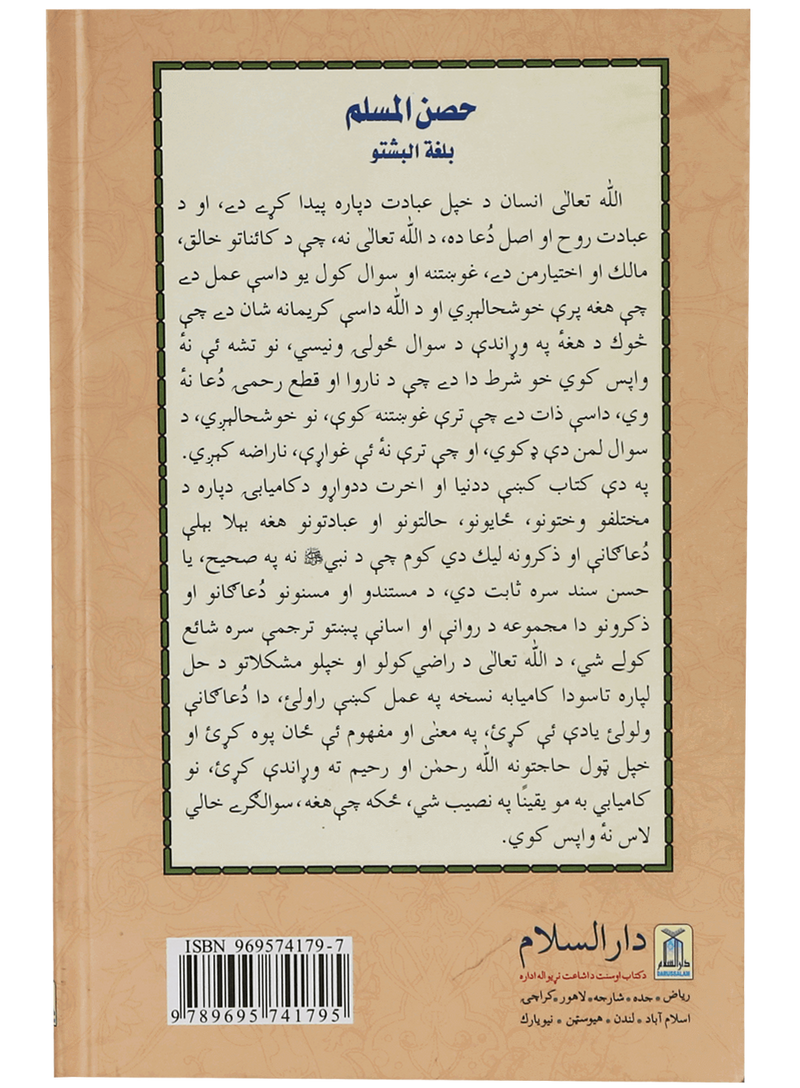 حصن المسلم
بلغة البشتو
الله تعالٰی انسان د خپل عبادت دپاره پيدا کړے دے، او د
عبادت روح او اصل دُعا ده، د الله تعالٰی نه، چې د کائناتو خالق،
مالك او اختيارمن دے، غوښتنه او سوال کول يو داسې عمل دے
چې هغه پرې خوشحالېږي او د الله داسې کريمانه شان دے چې
څوك د هغهٔ په وړاندې د سوال څولۍ ونيسي، نو تشه ئې نهٔ
واپس کوي خو شرط دا دے چې د ناروا او قطع رحمۍ دُعا نهٔ
وي، داسې ذات دے چې ترې غوښتنه کوې، نو خوشحالېږي، د
سوال لمن دې ډکوي، او چې ترې نهٔ ئې غواړې، ناراضه کېږي.
په دې کتاب کښې ددنيا او اخرت ددواړو دکاميابۍ دپاره د
مختلفو وختونو، ځايونو، حالتونو او عبادتونو هغه بېلا بېلې
دُعاګانې او ذکرونه ليك دي کوم چې د نبيﷺ نه په صحيح، يا
حسن سند سره ثابت دي، د مستندو او مسنونو دُعاګانو او
ذکرونو دا مجموعه د روانې او اسانې پښتو ترجمې سره شائع
کولے شي، د الله تعالٰی د راضي کولو او خپلو مشکلاتو د حل
لپاره تاسودا کاميابه نسخه په عمل کښې راولئ، دا دُعاګانې
ولولئ يادې ئې کړئ، په معنٰی او مفهوم ئې ځان پوه کړئ او
خپل ټول حاجتونه الله رحمٰن او رحيم ته وړاندې کړئ، نو
کاميابي به مو يقينًا په نصيب شي، ځکه چې هغه، سوالګرے خالي
لاس نهٔ واپس کوي.
ISBN 969574179-7
9 789695 741795
دارالسلام
دارالسلام
DARUSSALAM
دکتاب اوسنت داشاعت نړيواله اداره
رياض • جده • شارجه • لاهور • کراچۍ
اسلام آباد • لندن • هيوسټن • نيويارك